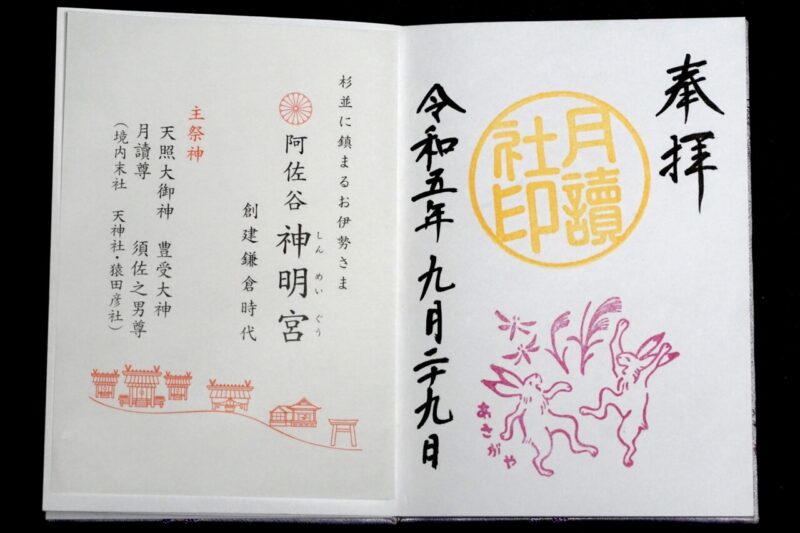 奉拝
月讀
社印
あさがや
令和五年 九月二十九日
杉並に鎮まるお伊勢さま
しん めい ぐう
阿佐谷 神明宮
創建鎌倉時代
主祭神
天照大御神 豊受大神
月讀尊 須佐之男尊
（境内末社 天神社・猿田彦社）